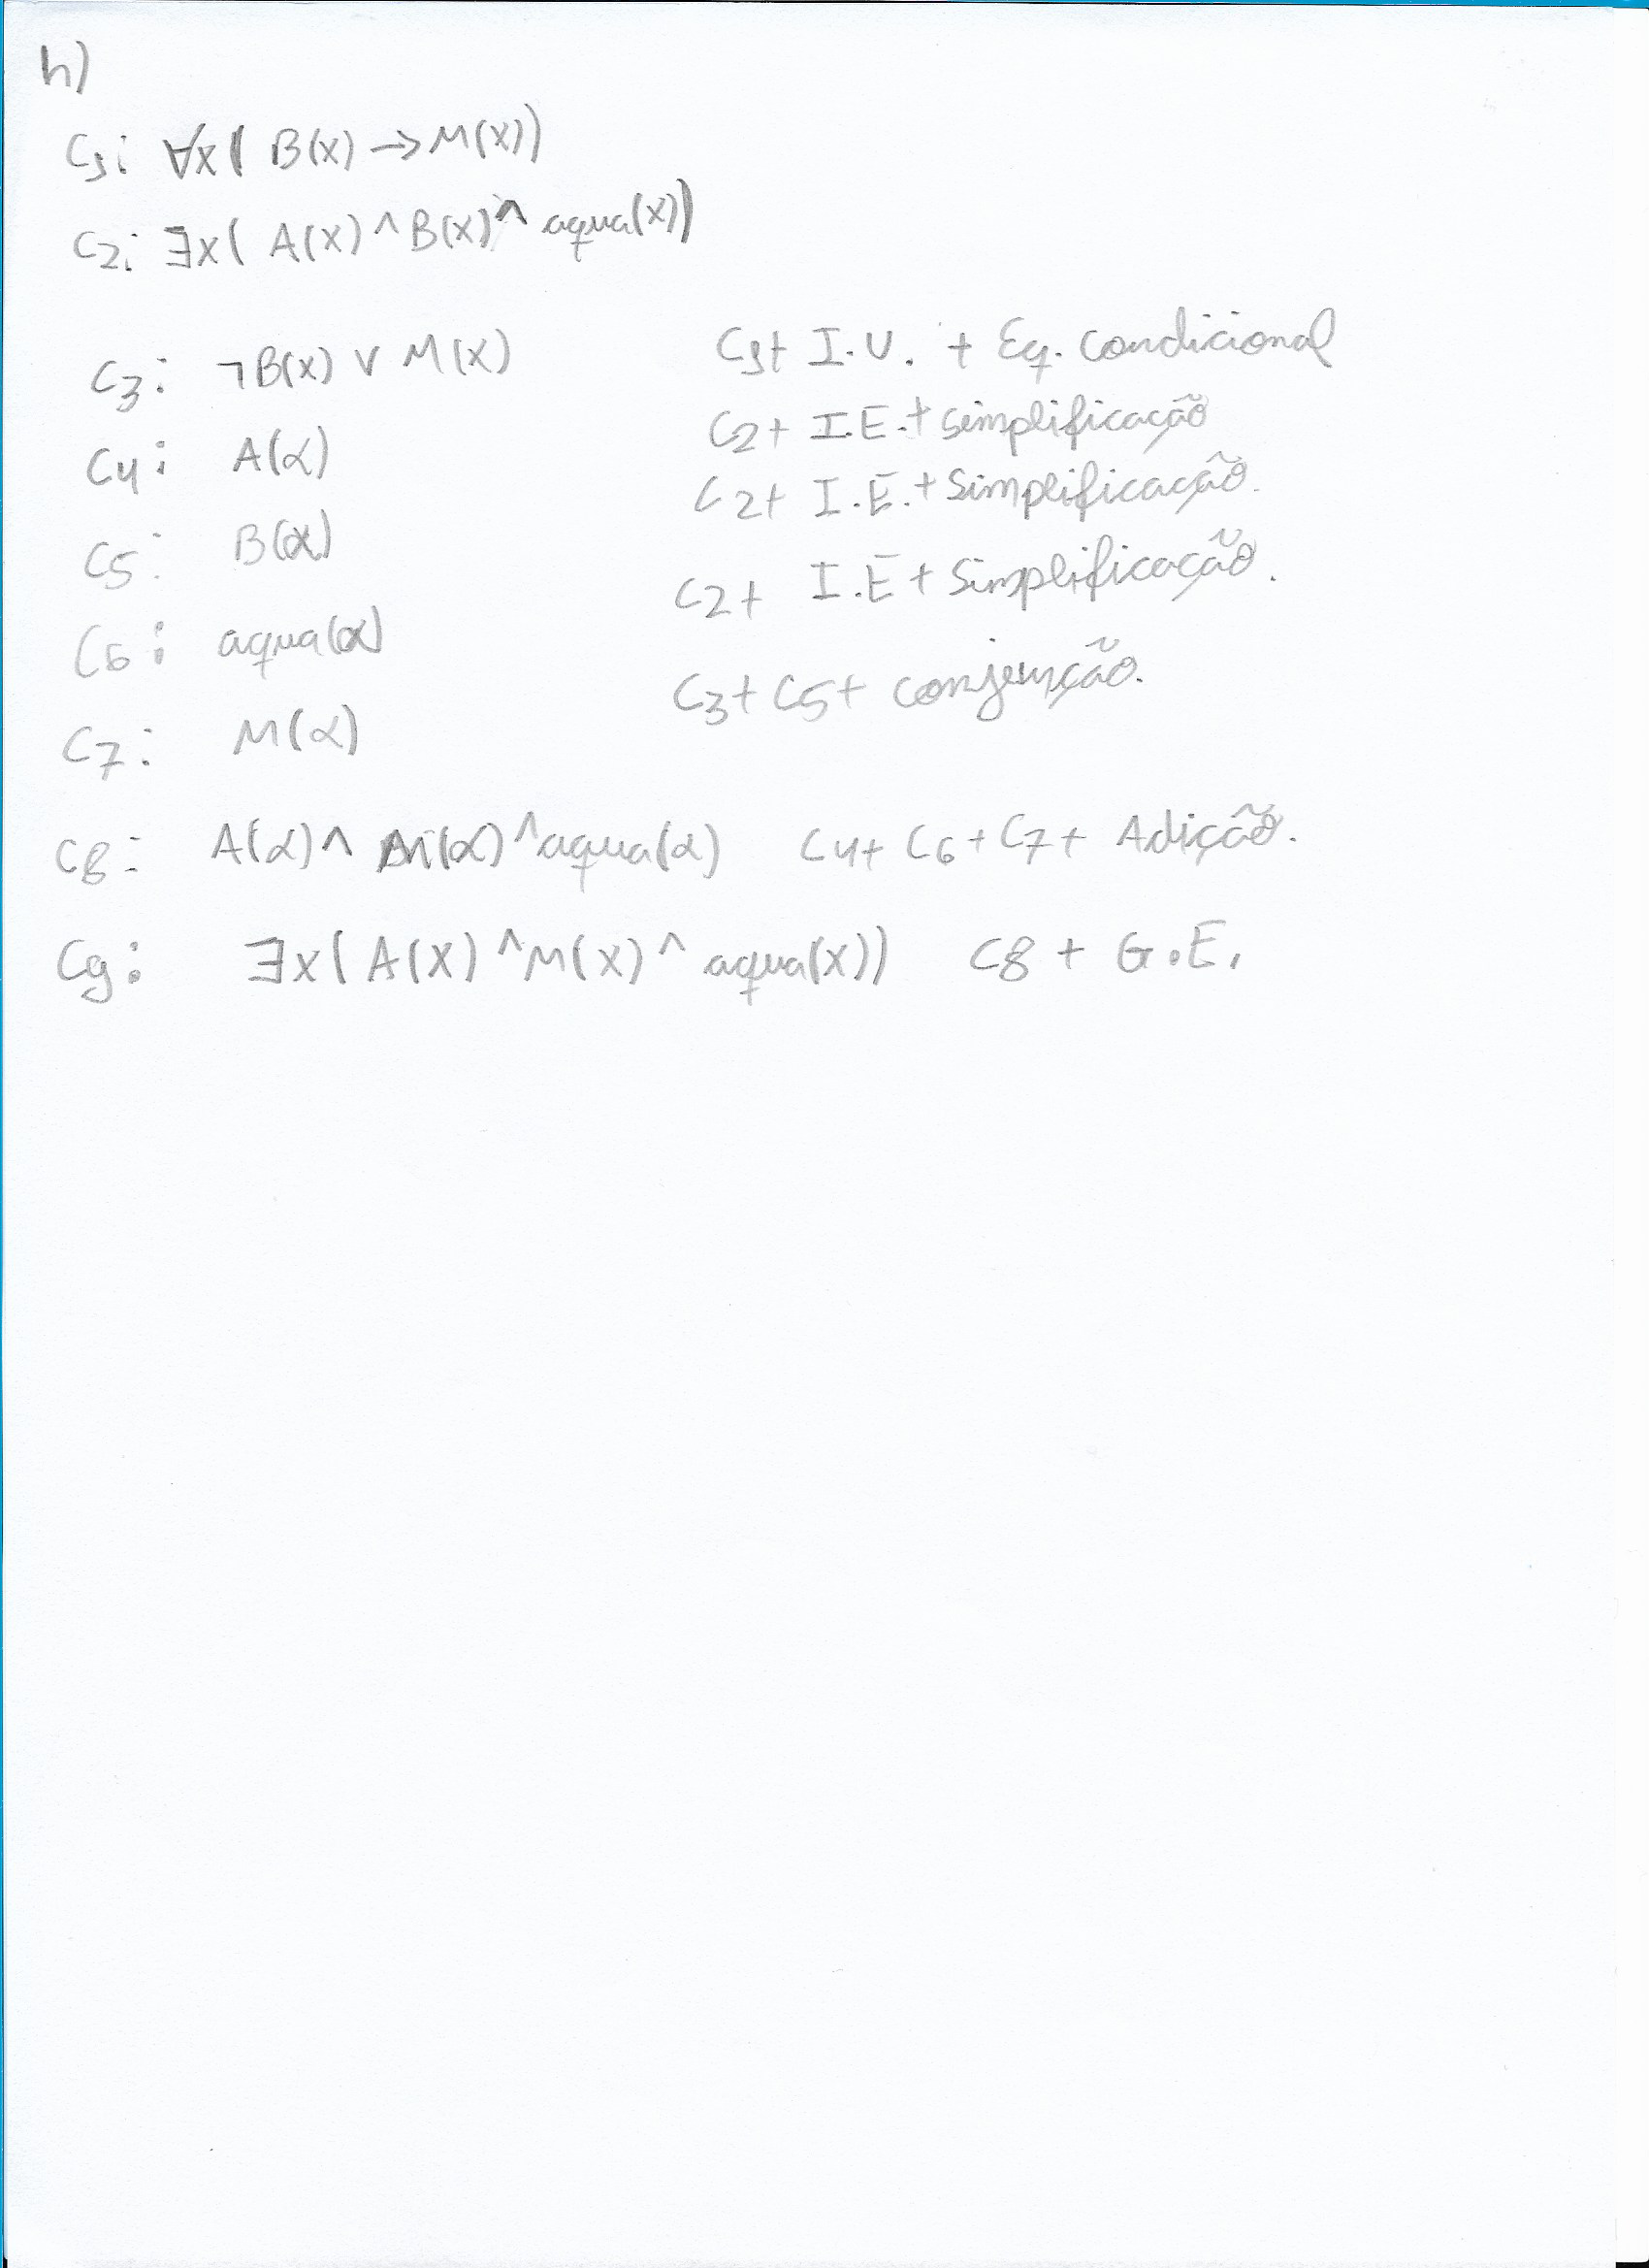 h)
C1: ∀x( B(x) → M(x))
C2: ∃x( A(x) ^ B(x) ^ aqua(x))
C3: ¬B(x) ∨ M(x) C1+ I.U. + Eq. Condicional
C4: A(α) C2+ I.E.+ Simplificação
C5: B(α) C2+ I.E.+ Simplificação.
C6: aqua(α) C2+ I.E + Simplificação.
C7: M(α) C3+ C5+ conjunção.
C8: A(α) ^ M(α) ^ aqua(α) C4+ C6+ C7+ Adição.
C9: ∃x( A(x) ^ M(x) ^ aqua(x)) C8 + G.E.